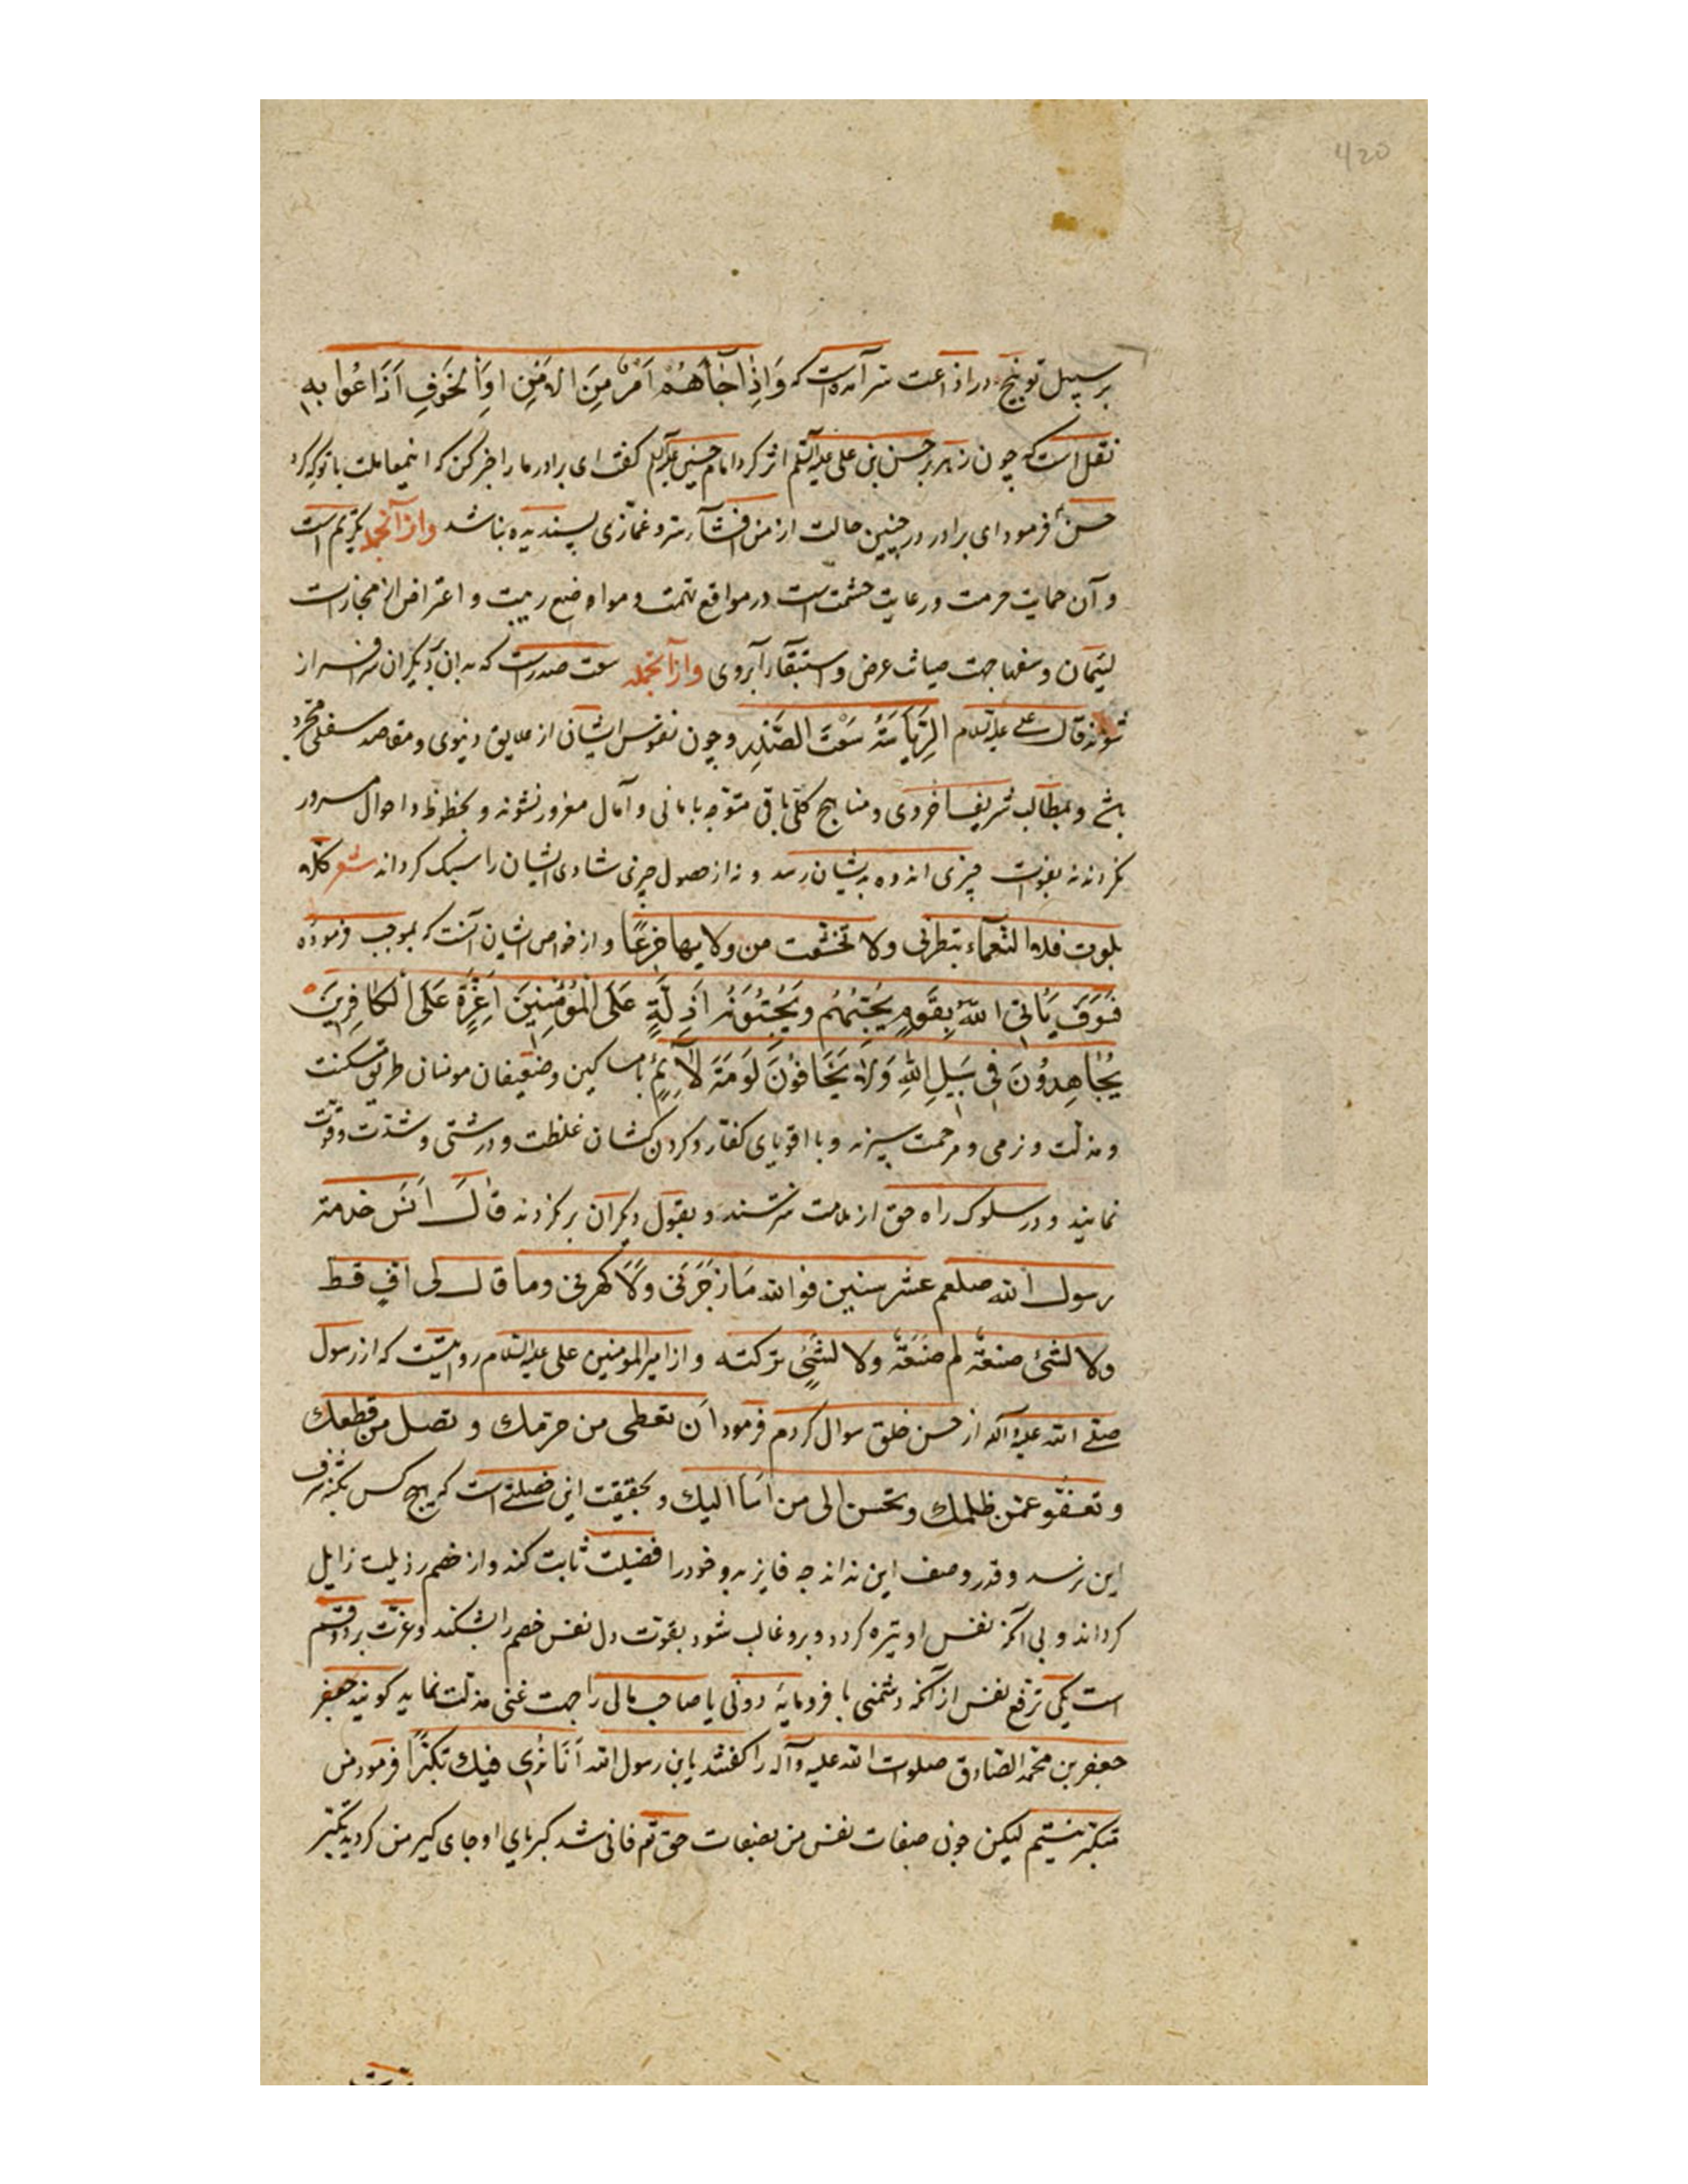 420
بر سبیل توبیخ در اذاعت سر آمده است که وَاِذٰا جٰآءَهُمْ اَمْرٌ مِنَ الاَمْنِ اَوِ الْخَوفِ اَذَاعُوا بِهِ
نقل است که چون زهر بر حسن بن علی علیه السلم اثر کرد امام حسین علیه السلم گفت ای برادر ما را خبر کن که این معاملت با تو که کرد
حسن فرمود ای برادر در چنین حالت از من افشآء سر و غمازی پسندیده نباشد وازآنجمله تکریم است
و آن حمایت حرمت و رعایت حشمت است در مواقع تهمت و مواضع ریبت و اعتراض از مجازات
لئیمان و سفها جهت صیانت عرض و استبقآء آبروی وازآنجمله سعت صدرست که بدان دیگران سرافراز
شوند قال علی علیه السلام الرِّیاسَةُ سَعَتُ الصَّدْرِ و چون نفوس ایشان از علایق دنیوی و مقاصد سفلی مجرد
باشد و بمطالب شریف اخروی و مناهج کلی باقی متوجه بامانی و آمال مغرور نشوند و بحظوظ و احوال مسرور
نگردند نه بفوات چیزی اندوه بدیشان رسد و نه از حصول چیزی شادی ایشان را سبک گرداند شعر کلاه
بلوت فلا النعمآء تبطرنی ولا تخشعت من ولایها جزعًا و از خواص ایشان آنست که بموجب فرموده
فَسَوْفَ یَأتِی اللّٰهُ بِقَوْمٍ یُحِبُّهُمْ وَیُحِبُّونَهُ اَذِلَّةٍ عَلَی الْمُؤْمِنِینَ اَعِزَّةٍ عَلَی الْکٰافِرِینَ
یُجٰاهِدُونَ فِی سَبِیلِ اللّٰهِ وَلاٰ یَخَافُونَ لَوْمَةَ لاٰئِمٍ با مساکین و ضعیفان مومنان طریق مسکنت
و مذلت و نرمی و مرحمت سپرند و با اقویای کفار و گردن کشان غلظت و درشتی و شدت و قوت
نمایند و در سلوک راه حق از ملامت نترسند و بقول دیگران برنگردند قٰالَ اَنَس خدمت
رسول الله صلعم عشر سنین فوالله مَا زَجَرَنی ولَا کهرنی وما قال لی افٍ قط
ولا لشئ صنعته لم صنعته ولا لشئٍ ترکته و از امیر المومنین علی علیه السلام روایتست که از رسول
صلی الله علیه وآله از حسن خلق سوال کردم فرمود اَن تعطی من حرمک و تصل من قطعک
و تعفو عمن ظلمک وتحسن الی من اَسَاء الیک و بحقیقت این خصلتی است که هیچ کس بکنه شرف
این نرسد و قدر وصف این نداند چه فایز بدو خود را فضیلت ثابت کند و از خصم رذیلت زایل
گرداند و بی آنکه نفس او تیره گردد و برو غالب شود بقوت دل نفس خصم را بشکند و عزت بر دو قسم
است یکی ترفع نفس از آنکه دشمنی با فرومایهٔ دونی یا صاحب مالی را جهت غنی مذلت نماید گویند جعفر
جعفر بن محمد الصادق صلوات الله علیه وآله را گفتند یابن رسول الله اَنَا نَرٰی فیک تکبّرًا فرمود من
متکبر نیستم لیکن چون صفات نفس من بصفات حق تم فانی شد کبریای او جای کبر من گردید تکبر